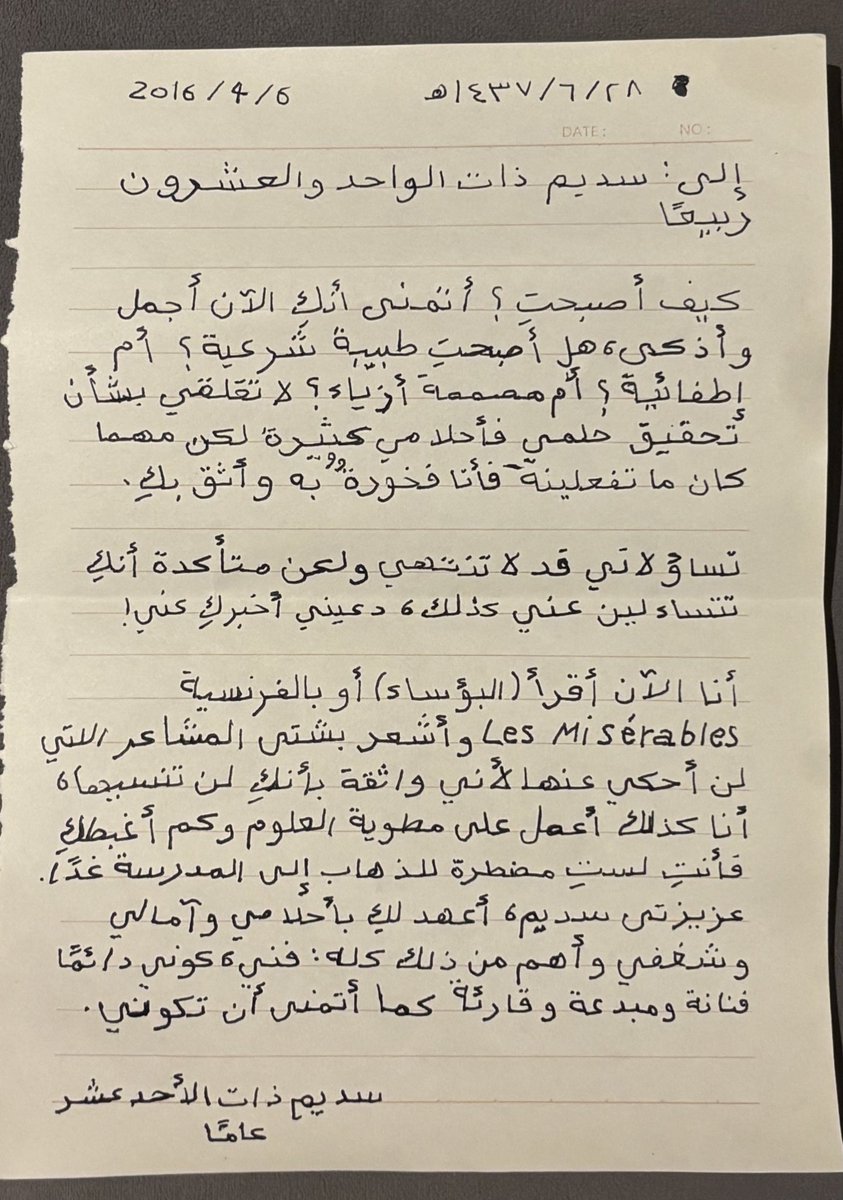 ١٤٣٧/٦/٢٨هـ 2016/4/6
DATE: NO:
إلى: سديم ذات الواحد والعشرون
ربيعًا
كيف أصبحتِ؟ أتمنى أنكِ الآن أجمل
وأذكى، هل أصبحتِ طبيبة شرعية؟ أم
إطفائية؟ أم مصممة أزياء؟ لا تقلقي بشأن
تحقيق حلمي فأحلامي كثيرة لكن مهما
كان ما تفعلينه فأنا فخورةٌ به وأثق بكِ.
تساؤلاتي قد لا تنتهي ولكن متأكدة أنكِ
تتساءلين عني كذلك، دعيني أخبركِ عني!
أنا الآن أقرأ (البؤساء) أو بالفرنسية
Les Misérables وأشعر بشتى المشاعر التي
لن أحكي عنها لأني واثقة بأنكِ لن تنسيها،
أنا كذلك أعمل على مطوية العلوم وكم أغبطكِ
فأنتِ لستِ مضطرة للذهاب إلى المدرسة غدًا.
عزيزتي سديم، أعهد لكِ بأحلامي وآمالي
وشغفي وأهم من ذلك كله: فني، كوني دائمًا
فنانة ومبدعة وقارئة كما أتمنى أن تكوني.
سديم ذات الأحد عشر
عامًا